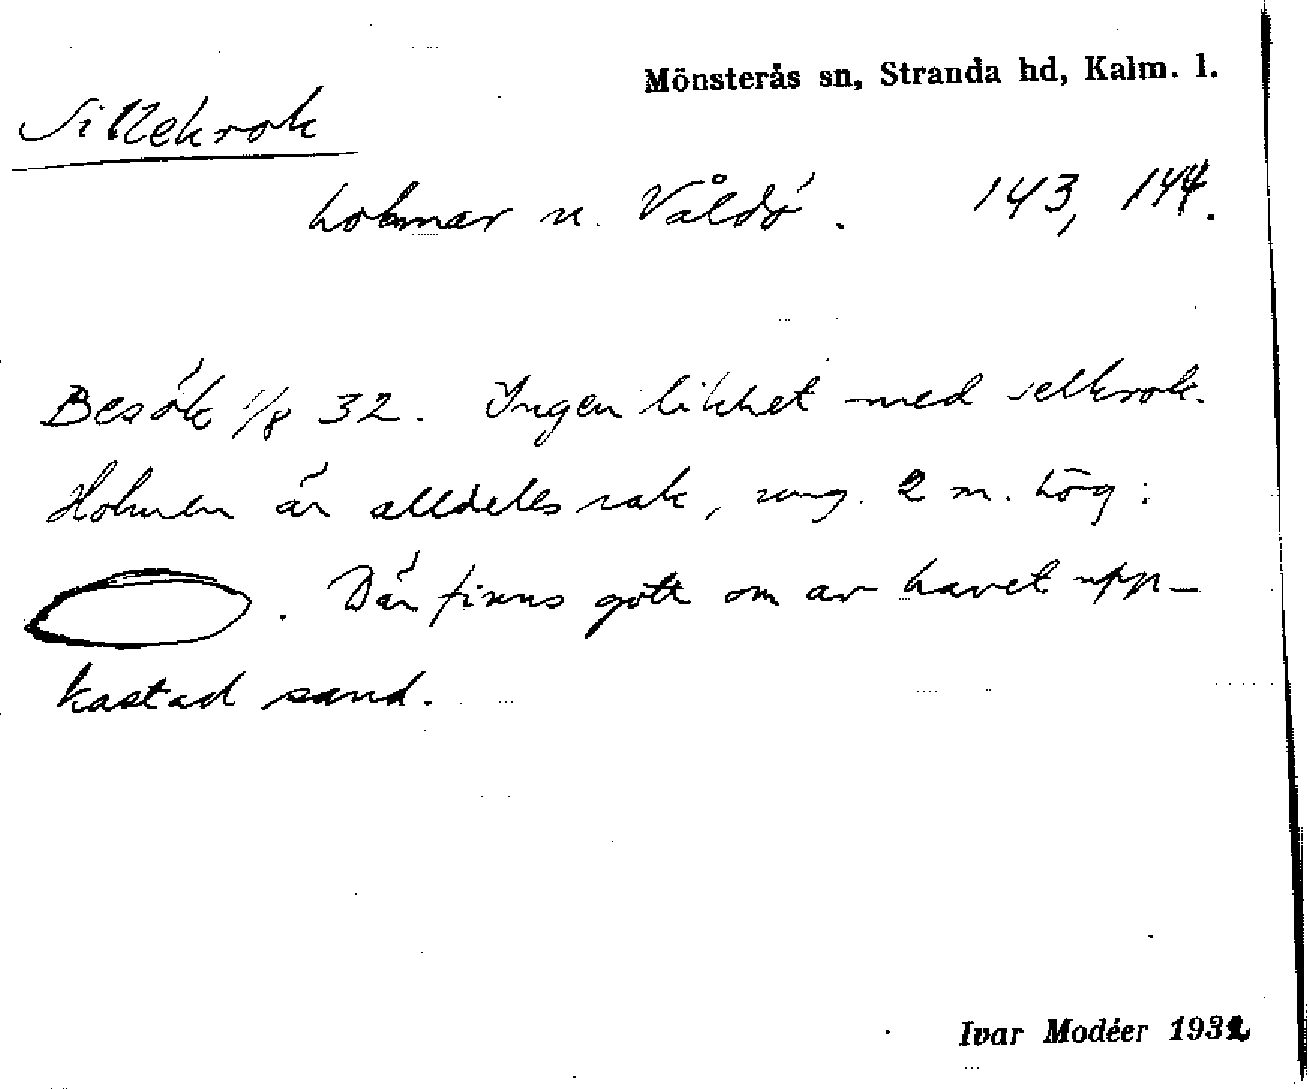 Mönsterås sn, Stranda hd, Kalm. l.
Sillekrok
holmar n. Våldö. 143, 144.
Besök 1/8 32. Ingen likhet med selkrok.
Holmen är alldeles rak, ung. 2 m. hög:
. Där finns gott om av havet upp-
kastad sand.
Ivar Modéer 1932